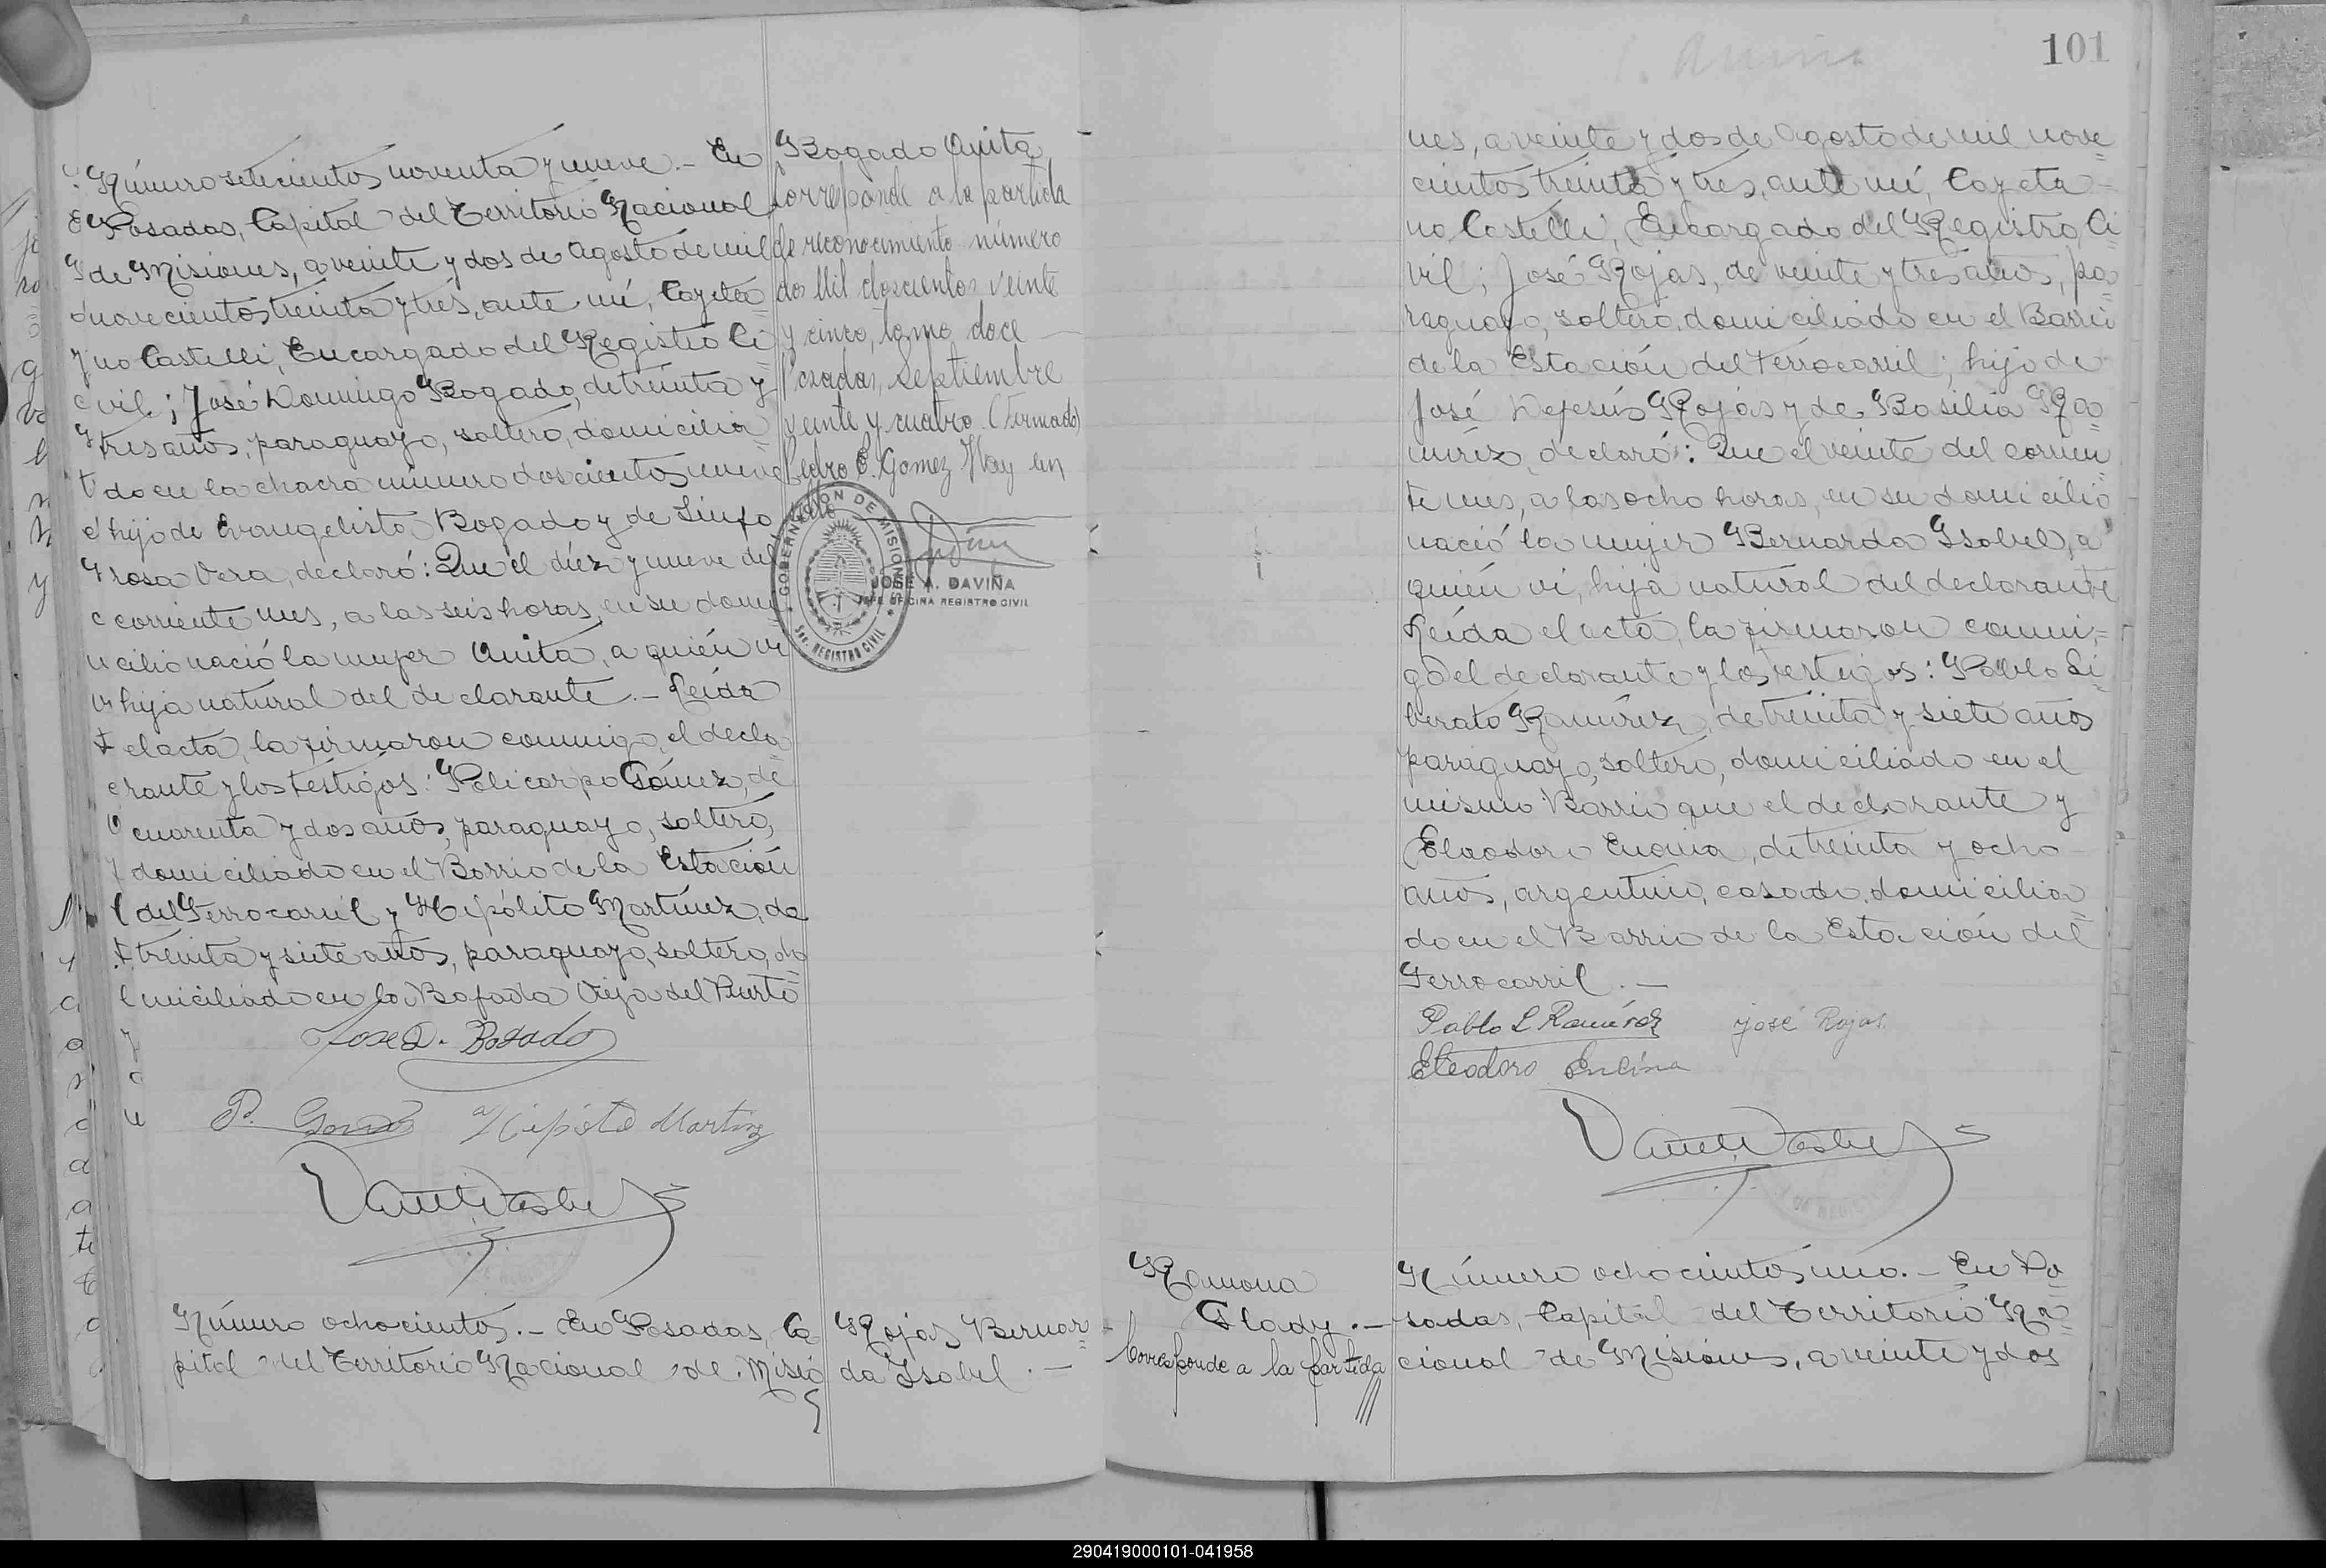 Número setecientos noventa y nueve.- En
Posadas, Capital del Territorio Nacional
de Misiones, a veinte y dos de Agosto de mil
novecientos treinta y tres, ante mí, Cayeta=
no Castelli, Encargado del Registro Ci
vil; José Domingo Bogado, de treinta y
tres años, paraguayo, soltero, domicilia=
do en la chacra número doscientos nueve
hijo de Evangelista Bogado y de Sinfo
rosa Vera, declaró: Que el diez y nueve del
corriente mes, a las seis horas, en su domi
cilio nació la mujer Anita, a quién vi
hija natural del declarante.- Leída
el acta, la firmaron conmigo, el decla=
rante y los testigos: Policarpo Gómez, de
cuarenta y dos años, paraguayo, soltero,
domiciliado en el Barrio de la Estación
del Ferrocarril y Hipólito Martínez, de
treinta y siete años, paraguayo, soltero, do=
miciliado en la Bajada Vieja del Puerto
José D. Bogado
P. Gomez Hipólito Martinez
Bogado Anita
Corresponde a la partida
de reconocimiento número
dos Mil doscientos veinte
y cinco, tomo doce
Posadas, Septiembre
veinte y cuatro (Firmado)
Pedro E. Gomez Hay un
sello
GOBERNACION DE MISIONES
Sec. REGISTRO CIVIL
JOSE A. DAVIÑA
JEFE OFICINA REGISTRO CIVIL
Número ochocientos.- En Posadas, Ca
pital del Territorio Nacional de Misio
Rojas Bernar=
da Isabel.-
101
nes, a veinte y dos de Agosto de mil nove=
cientos treinta y tres, ante mí, Cayeta-
no Castelli, Encargado del Registro Ci=
vil; José Rojas, de veinte y tres años, pa=
raguayo, soltero, domiciliado en el Barrio
de la Estación del Ferrocarril; hijo de
José Dejesús Rojas y de Basilia Ra=
mírez, declaró: Que el veinte del corrien=
te mes, a las ocho horas, en su domicilio
nació la mujer Bernarda Isabel, a
quién vi, hija natural del declarante
Leída el acta, la firmaron conmi=
go el declarante y los testigos: Pablo Li=
berato Ramírez, de treinta y siete años
paraguayo, soltero, domiciliado en el
mismo Barrio que el declarante y
Eleodoro Encina, de treinta y ocho
años, argentino, casado, domicilia=
do en el Barrio de la Estación del
Ferrocarril.-
Pablo L Ramírez José Rojas
Eleodoro Encina
Ramona
Glady.-
Corresponde a la partida
Número ochocientos uno.- En Po=
sadas, Capital del Territorio Na=
cional de Misiones, a veinte y dos
290419000101-041958